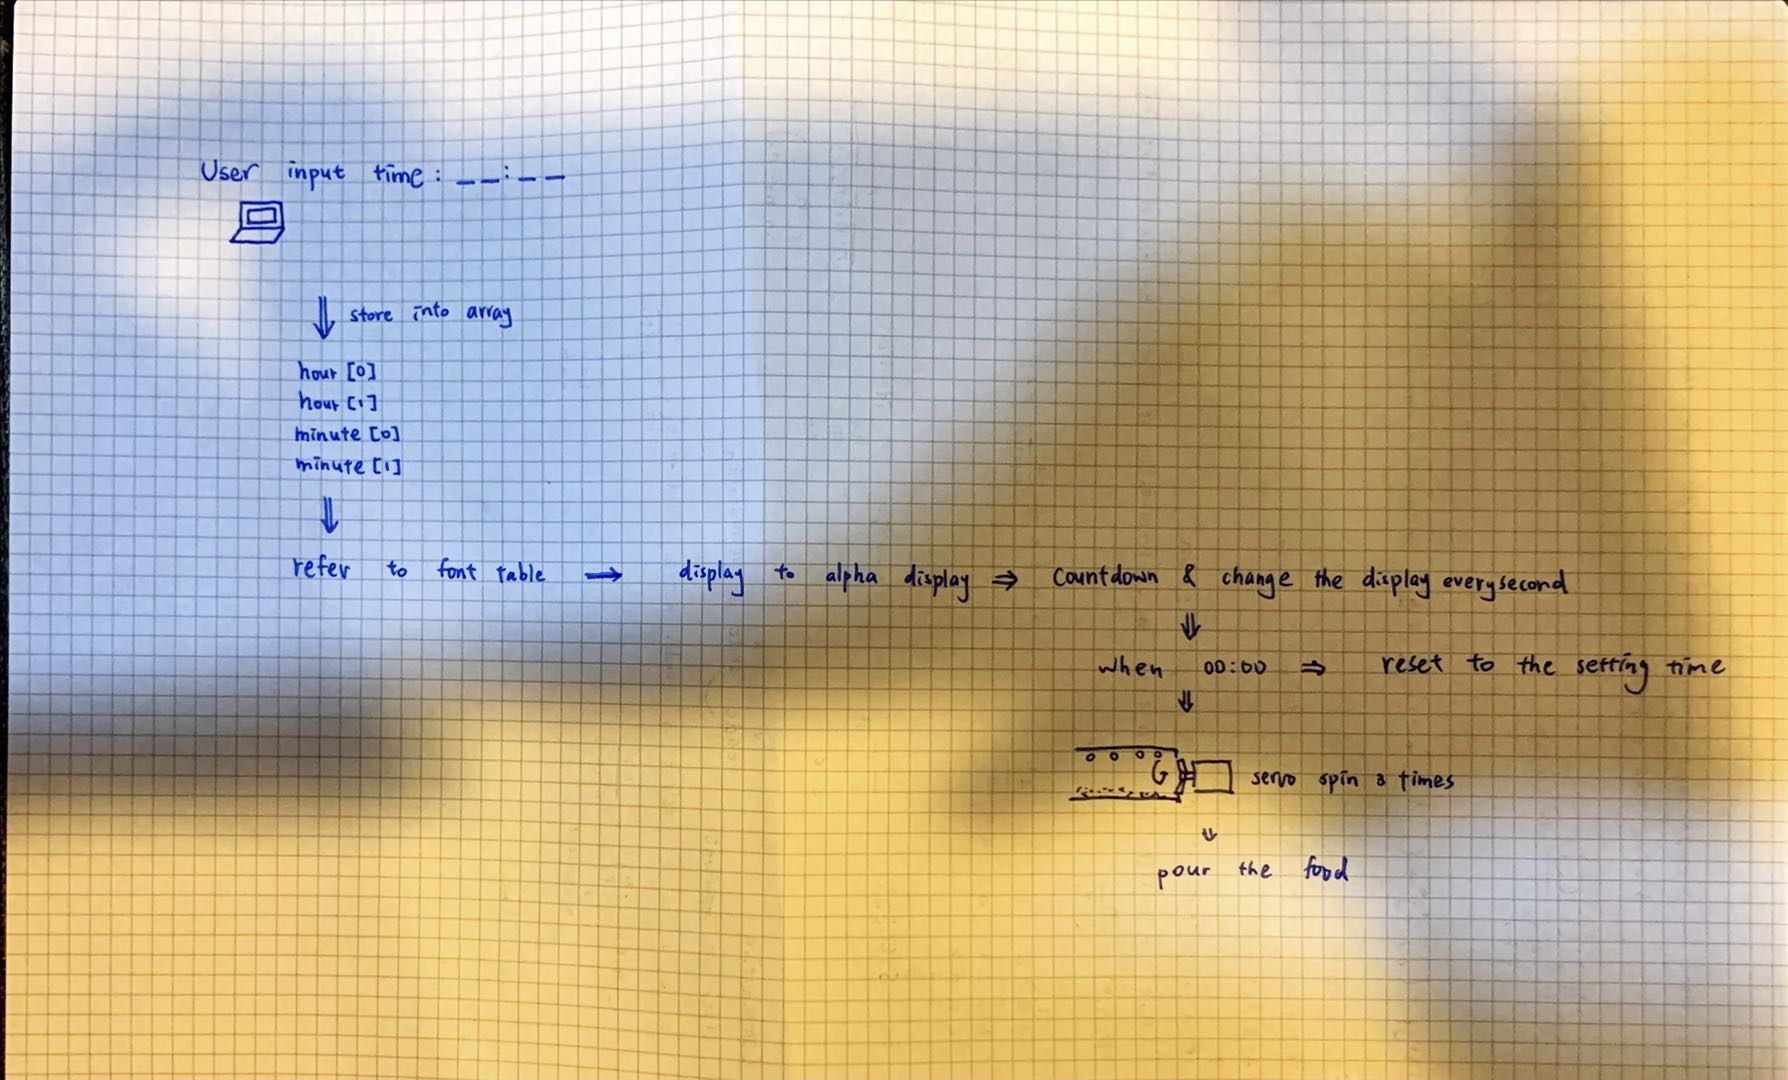 User input time: __:__
store into array
hour [0]
hour [1]
minute [0]
minute [1]
refer to font table → display to alpha display ⇒ countdown & change the display every second
when 00:00 ⇒ reset to the setting time
servo spin 3 times
pour the food